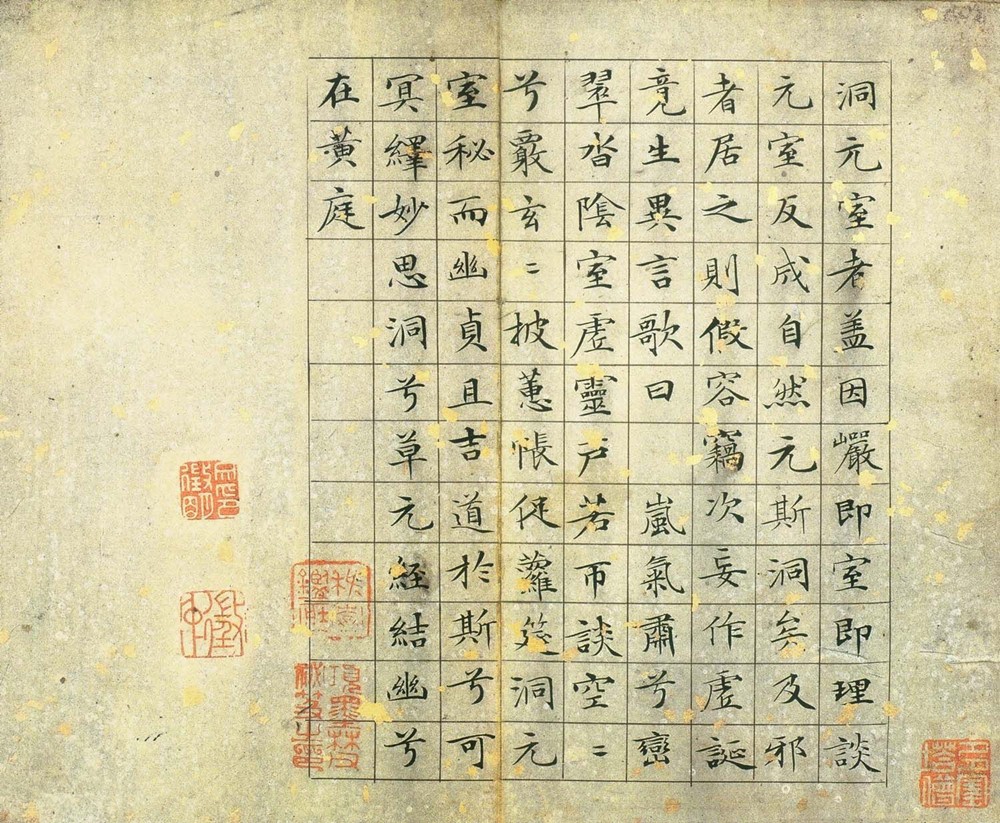 洞元室者盖因巗即室即理談
元室反成自然元斯洞矣及邪
者居之則假容竊次妄作虛誕
竟生異言歌曰 嵐氣肅兮巒
翠沓陰室虛靈戶若帀談空〻
兮覈玄〻披蕙帳促蘿筵洞元
室秘而幽貞且吉道於斯兮可
冥繹妙思洞兮草元經結幽兮
在黃庭
項墨林父祕笈之印